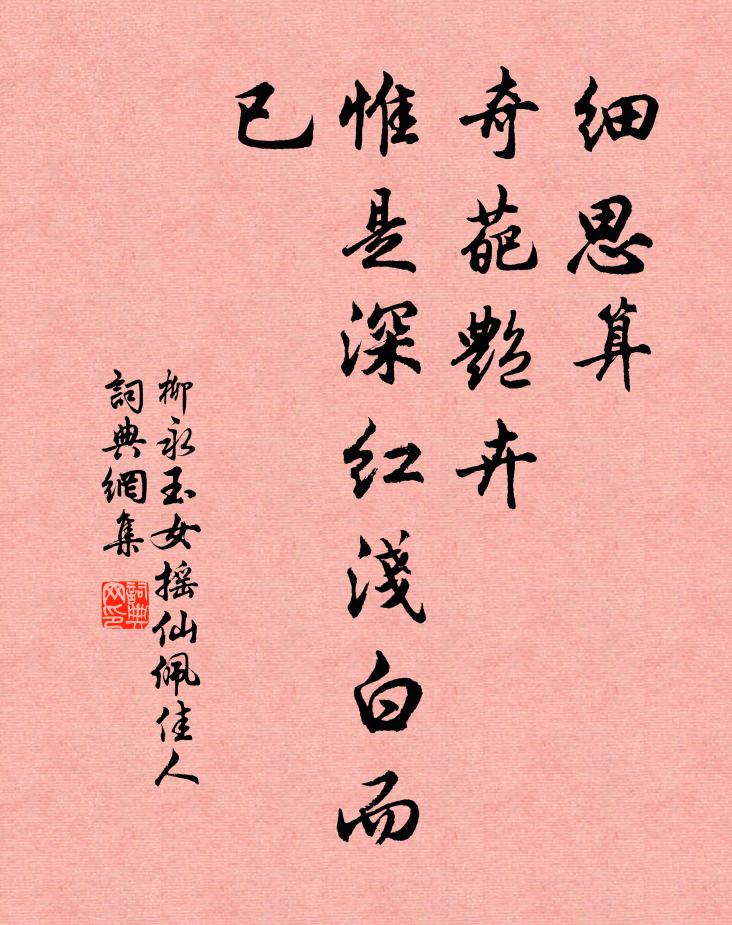 細思算
奇葩艷卉
惟是深紅淺白而
已
柳永玉女搖仙佩佳人
詞典網集
詞典网印